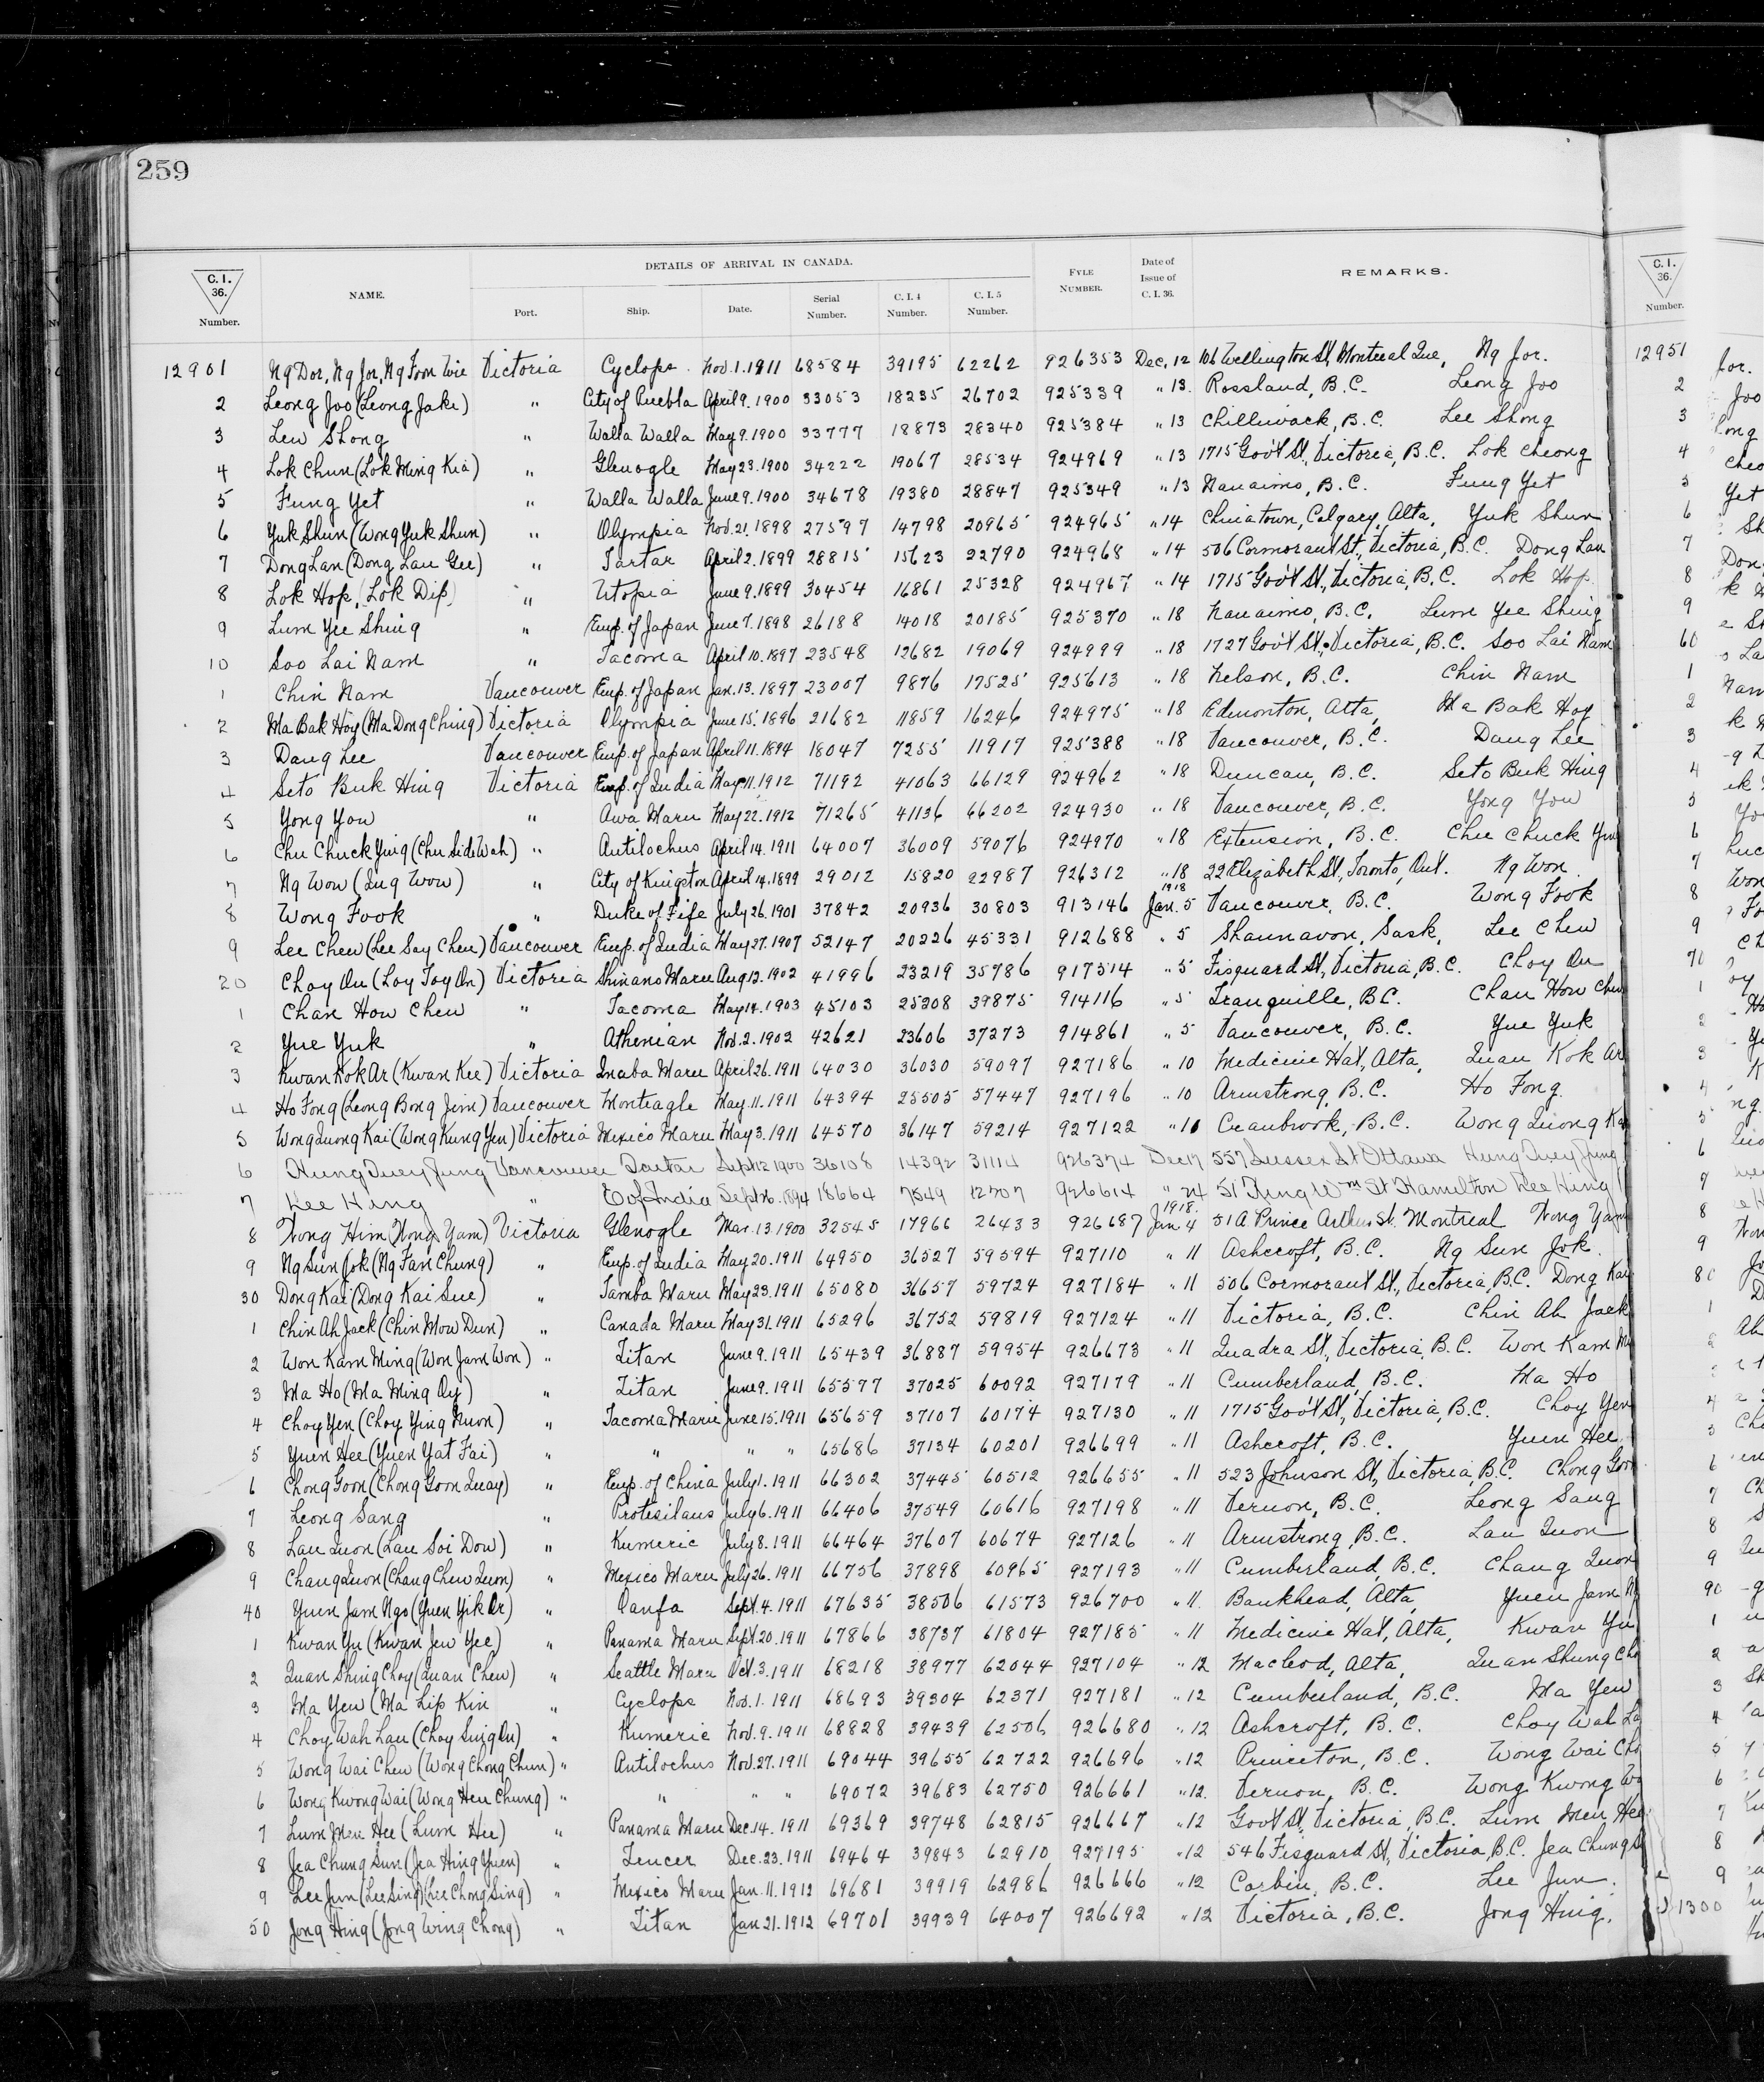 259
DETAILS OF ARRIVAL IN CANADA.
C. I. 36. Number. NAME. Port. Ship. Date. Serial Number. C. I. 4 Number. C. I. 5 Number. FYLE NUMBER. Date of Issue of C. I. 36. REMARKS. C. I. 36. Number.
12901 Ng Dor, Ng Jor, Ng Foon Wie Victoria Cyclops Nov. 1. 1911 68584 39195 62262 926353 Dec. 12 106 Wellington St, Montreal Que, Ng Jor. 12951
2 Leong Joo (Leong Jake) " City of Puebla April 9. 1900 33053 18235 26702 925339 " 13 Rossland, B.C. Leong Joo 2
3 Lew Shong " Walla Walla May 9. 1900 33777 18873 28340 925384 " 13 Chilliwack, B.C. Lee Shong 3
4 Lok Chun (Lok Ming Kia) " Glenogle May 23. 1900 34222 19067 28534 924969 " 13 1715 Gov't St, Victoria, B.C. Lok Cheong 4
5 Fung Yet " Walla Walla June 9. 1900 34678 19380 28847 925349 " 13 Nanaimo, B.C. Fung Yet 5
6 Yuk Shun (Wong Yuk Shun) " Olympia Nov. 21. 1898 27597 14798 20965 924965 " 14 Chinatown, Calgary, Alta, Yuk Shun 6
7 Dong Lan (Dong Lau Gee) " Tartar April 2. 1899 28815 15623 22790 924968 " 14 506 Cormorant St., Victoria, B.C. Dong Lan 7
8 Lok Hop, (Lok Dip) " Utopia June 9. 1899 30454 16861 25328 924967 " 14 1715 Gov't St, Victoria, B.C. Lok Hop 8
9 Lum Yee Shing " Emp. of Japan June 7. 1898 26188 14018 20185 925370 " 18 Nanaimo, B.C. Lum Yee Shing 9
10 Soo Lai Nam " Tacoma April 10. 1897 23548 12682 19069 924999 " 18 1727 Gov't St, Victoria, B.C. Soo Lai Nam 60
1 Chin Nam Vancouver Emp. of Japan Jan. 13. 1897 23007 9876 17525 925613 " 18 Nelson, B.C. Chin Nam 1
2 Ma Bak Hoy (Ma Dong Ching) Victoria Olympia June 15. 1896 21682 11859 16246 924975 " 18 Edmonton, Alta, Ma Bak Hoy 2
3 Dang Lee Vancouver Emp. of Japan April 11. 1894 18047 7255 11917 925388 " 18 Vancouver, B.C. Dang Lee 3
4 Seto Buk Hing Victoria Emp. of India May 11. 1912 71192 41063 66129 924962 " 18 Duncan, B.C. Seto Buk Hing 4
5 Yong You " Awa Maru May 22. 1912 71265 41136 66202 924930 " 18 Vancouver, B.C. Yong You 5
6 Chu Chuck Ying (Chu Side Wah) " Antilochus April 14. 1911 64007 36009 59076 924970 " 18 Extension, B.C. Chu Chuck 6
7 Ng Wow (Ing Wow) " City of Kingston April 14. 1899 29012 15820 22987 926312 " 18 22 Elizabeth St, Toronto, Ont. Ng Won 7
8 Wong Fook " Duke of Fife July 26. 1901 37842 20936 30803 913146 1918 Jan. 5 Vancouver, B.C. Wong Fook 8
9 Lee Chew (Lee Say Chew) Vancouver Emp. of India May 27. 1907 52147 20226 45331 912688 " 5 Shaunavon, Sask, Lee Chew 9
20 Choy On (Loy Toy On) Victoria Shinano Maru Aug 12. 1902 41996 23219 35786 917514 " 5 Fisguard St, Victoria, B.C. Choy On 70
1 Chan How Chew " Tacoma May 14. 1903 45103 25208 39875 914116 " 5 Tranquille, B.C. Chan How Chew 1
2 Yue Yuk " Athenian Nov. 2. 1902 42621 23606 37273 914861 " 5 Vancouver, B.C. Yue Yuk 2
3 Kwan Kok Ar (Kwan Kee) Victoria Inaba Maru April 26. 1911 64030 36030 59097 927186 " 10 Medicine Hat, Alta, Quan Kok Ar 3
4 Ho Fong (Leong Bong Jim) Vancouver Monteagle May 11. 1911 64394 25505 57447 927196 " 10 Armstrong, B.C. Ho Fong 4
5 Wong Quong Kai (Wong Kung Yen) Victoria Mexico Maru May 3. 1911 64570 36147 59214 927122 " 10 Cranbrook, B.C. Wong Quong 5
6 Hung Quey Jung Vancouver Tartar Sept 12 1900 36108 14392 31114 926374 Dec 17 557 Sussex St Ottawa Hung Quey Jung 6
7 Lee Hing " E of India Sept 26. 1894 18664 7549 12707 926614 " 24 51 King Wm St Hamilton Lee Hing 7
8 Wong Him (Wong Yam) Victoria Glenogle Mar. 13. 1900 32545 17966 26433 926687 1918. Jan 4 51A Prince Arthur St. Montreal Wong Yam 8
9 Ng Sun Jok (Ng Fan Chung) " Emp. of India May 20. 1911 64950 36527 59594 927110 " 11 Ashcroft, B.C. Ng Sun Jok. 9
30 Dong Kai (Dong Kai Sue) " Tamba Maru May 23. 1911 65080 36657 59724 927184 " 11 506 Cormorant St, Victoria, B.C. Dong Kai 80
1 Chin Ah Jack (Chin Mow Dun) " Canada Maru May 31. 1911 65296 36752 59819 927124 " 11 Victoria, B.C. Chin Ah Jack 1
2 Won Kam Ming (Won Jam Won) " Titan June 9. 1911 65439 36887 59954 926673 " 11 Quadra St, Victoria, B.C. Won Kam 2
3 Ma Ho (Ma Ming Oy) " Titan June 9. 1911 65577 37025 60092 927179 " 11 Cumberland, B.C. Ma Ho
4 Choy Yen (Choy Ying Nuon) " Tacoma Maru June 15. 1911 65659 37107 60174 927130 " 11 1715 Gov't St, Victoria, B.C. Choy Yen 4
5 Yuen Hee (Yuen Yat Fai) " " " " 65686 37134 60201 926699 " 11 Ashcroft, B.C. Yuen Hee 5
6 Chong Goon (Chong Goon Quay) " Emp. of China July 1. 1911 66302 37445 60512 926655 " 11 523 Johnson St, Victoria, B.C. Chong Goon 6
7 Leong Sang " Protesilaus July 6. 1911 66406 37549 60616 927198 " 11 Vernon, B.C. Leong Sang 7
8 Lau Quon (Lau Soi Dow) " Kumeric July 8. 1911 66464 37607 60674 927126 " 11 Armstrong, B.C. Lau Quon 8
9 Chang Quon (Chang Chew Quon) " Mexico Maru July 26. 1911 66756 37898 60965 927193 " 11 Cumberland, B.C. Chang Quon 9
40 Yuen Jam Ngo (Yuen Yik Or) " Oanfa Sept. 4. 1911 67635 38506 61573 926700 " 11 Bankhead, Alta, Yuen Jam 90
1 Kwan Yu (Kwan Jew Yee) " Panama Maru Sept. 20. 1911 67866 38737 61804 927185 " 11 Medicine Hat, Alta, Kwan Yu 1
2 Quan Shing Choy (Quan Chew) " Seattle Maru Oct. 3. 1911 68218 38977 62044 927104 " 12 Macleod, Alta, Quan Shung 2
3 Ma Yew (Ma Lip Kin " Cyclops Nov. 1. 1911 68693 39304 62371 927181 " 12 Cumberland, B.C. Ma Yew 3
4 Choy Wah Lau (Choy Suig On) " Kumeric Nov. 9. 1911 68828 39439 62506 926680 " 12 Ashcroft, B.C. Choy Wah 4
5 Wong Wai Chew (Wong Chong Chun) " Antilochus Nov. 27. 1911 69044 39655 62722 926696 " 12 Princeton, B.C. Wong Wai 5
6 Wong Kwong Wai (Wong Heu Chung) " " " " 69072 39683 62750 926661 " 12. Vernon, B.C. Wong Kwong 6
7 Lum Mew Hee (Lum Hee) " Panama Maru Dec. 14. 1911 69369 39748 62815 926667 " 12 Gov't St, Victoria, B.C. Lum Mew Hee 7
8 Jea Chung Sun (Jea Hing Yuen) " Teucer Dec. 23. 1911 69464 39843 62910 927195 " 12 546 Fisguard St, Victoria, B.C. Jea Chung 8
9 Lee Jun (Lee Sing) (Lee Chong Sing) " Mexico Maru Jan. 11. 1912 69681 39919 62986 926666 " 12 Corbin, B.C. Lee Jun. 9
50 Jong Hing (Jong Wing Chong) " Titan Jan 21. 1912 69701 39939 64007 926692 " 12 Victoria, B.C. Jong Hing. 1300